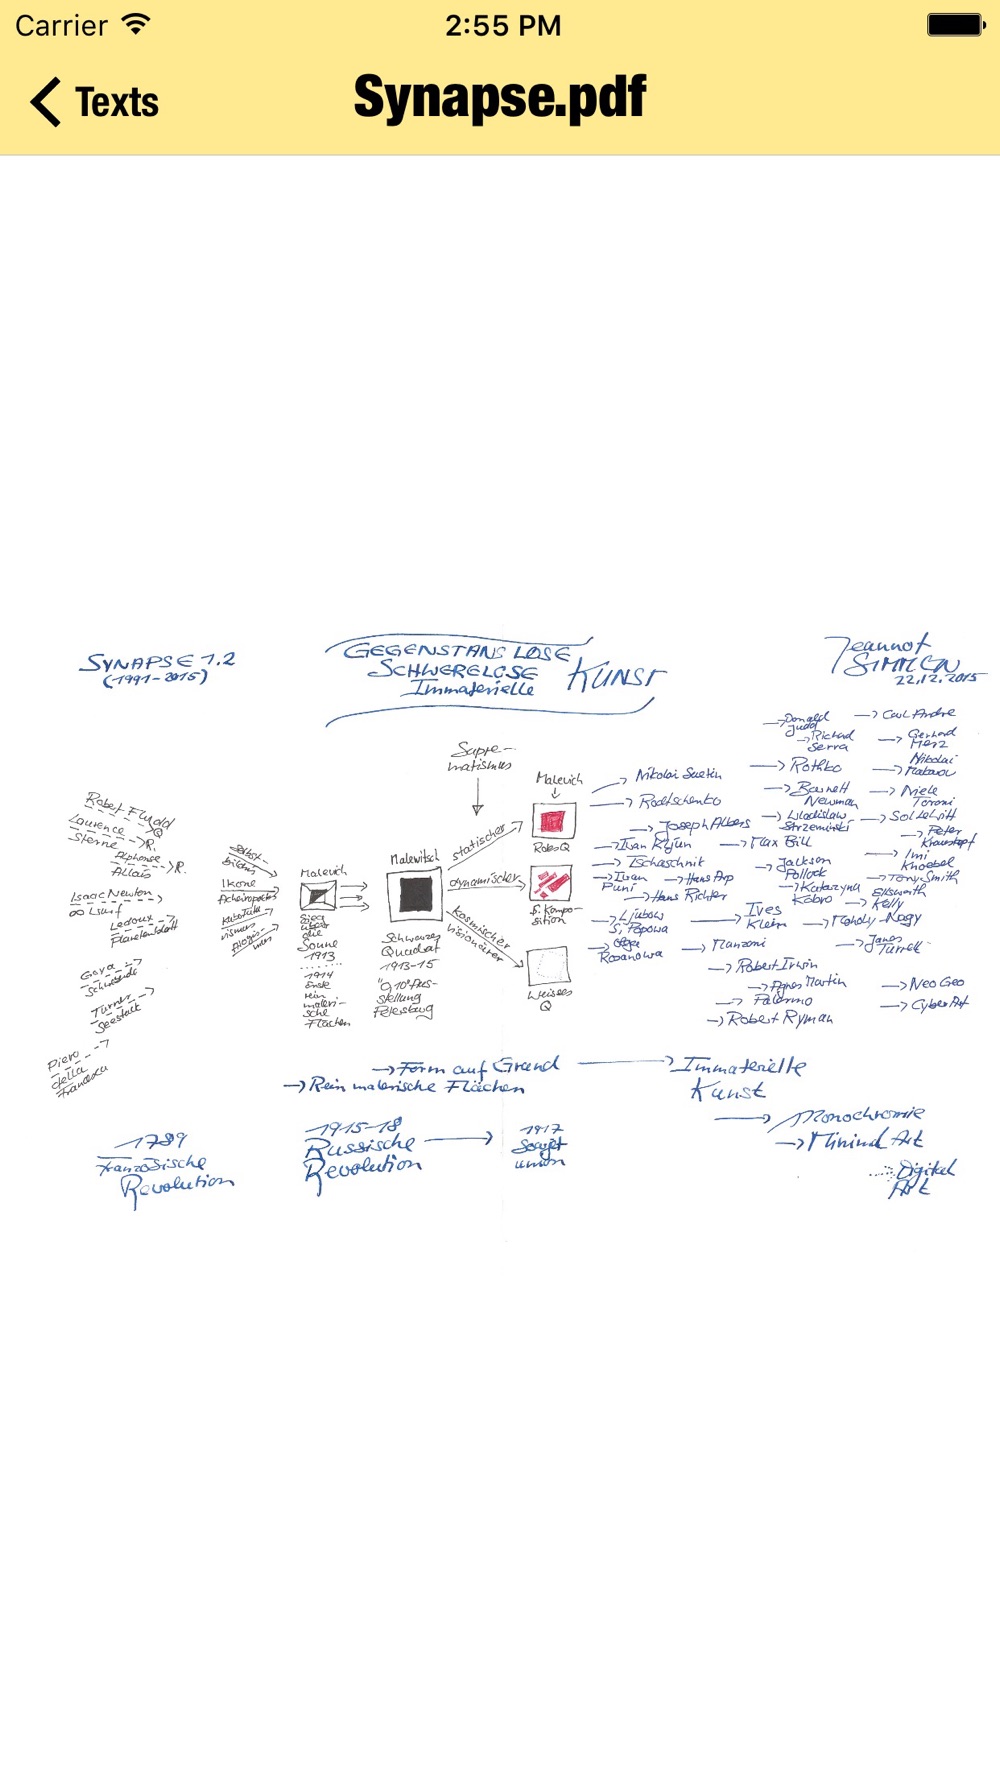 Carrier
2:55 PM
Texts
Synapse.pdf
SYNAPSE 1.2
(1991-2015)
GEGENSTANSLOSE
SCHWERELOSE
Immaterielle
KUNST
Jeannot
SIMMEN
22.12.2015
Supre-
matismus
Robert Fludd
Q
Laurence
Sterne
R.
Alphonse
Allais
R.
Isaac Newton
Ledoux
Goya
Turner
Seestück
Piero
della
Francesca
Selbst-
bildnis
Ikone
Acheiropoetos
Malevich
Sieg
über
die
Sonne
1913
1914
Erste
rein
maleri-
sche
Flächen
Malewitsch
Schwarzes
Quadrat
1913-15
"0,10" Aus-
stellung
Petersburg
statischer
dynamischer
kosmischer
visionärer
Malevich
Rotes Q
S. Kompo-
sition
Weisses
Q
Nikolai Suetin
Rodtschenko
Joseph Albers
Ivan Kljun
Max Bill
Tschaschnik
Iwan
Puni
Hans Arp
Hans Richter
Ljubow
S. Popowa
Olga
Rosanowa
Donald
Judd
Richard
Serra
Rothko
Barnett
Newman
Wladislaw
Strzeminski
Jackson
Pollock
Katarzyna
Kobro
Ives
Klein
Moholy-Nagy
Manzoni
Robert Irwin
Agnes Martin
Palermo
Robert Ryman
Carl Andre
Gerhard
Merz
Nikolai
Niele
Toroni
Sol LeWitt
Peter
Imi
Knoebel
Tony Smith
Ellsworth
Kelly
James
Turrell
Neo Geo
Cyber Art
Form auf Grund
Rein malerische Flächen
Immaterielle
Kunst
Monochromie
Minimal Art
Digital
Art
1789
Französische
Revolution
1915-18
Russische
Revolution
1917
Sowjet
union